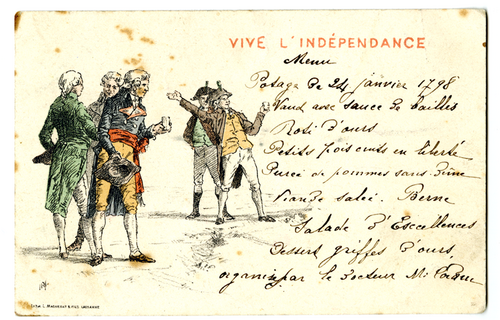 VIVE L'INDÉPENDANCE
Menu
Potage de 24 janvier 1798
Vaud avec sauce de bailles
Roti d'ours
Petits pois cuits en liberté
Purée de pommes sans
Viande salée. Berne
Salade d'Excellences
Dessert griffes d'ours,
organisé par le docteur Mr.
LAUSANNE